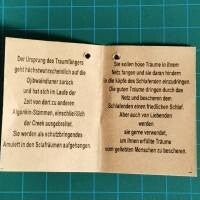 Der Ursprung des Traumfängers
geht höchstwahrscheinlich auf die
Ojibwaindianer zurück
und hat sich im Laufe der
Zeit von dort zu anderen
Algonkin-Stämmen, einschließlich
der Creek ausgebreitet.
Sie werden als schutzbringendes
Amulett in den Schlafräumen aufgehangen.
Sie sollen böse Träume in ihrem
Netz fangen und sie daran hindern
in die Köpfe des Schlafenden einzudringen.
Die guten Träume dringen durch das
Netz und bescheren dem
Schlafenden einen friedlichen Schlaf.
Aber auch von Liebenden
werden
sie gerne verwendet,
um ihnen erfüllte Träume
vom geliebten Menschen zu bescheren.